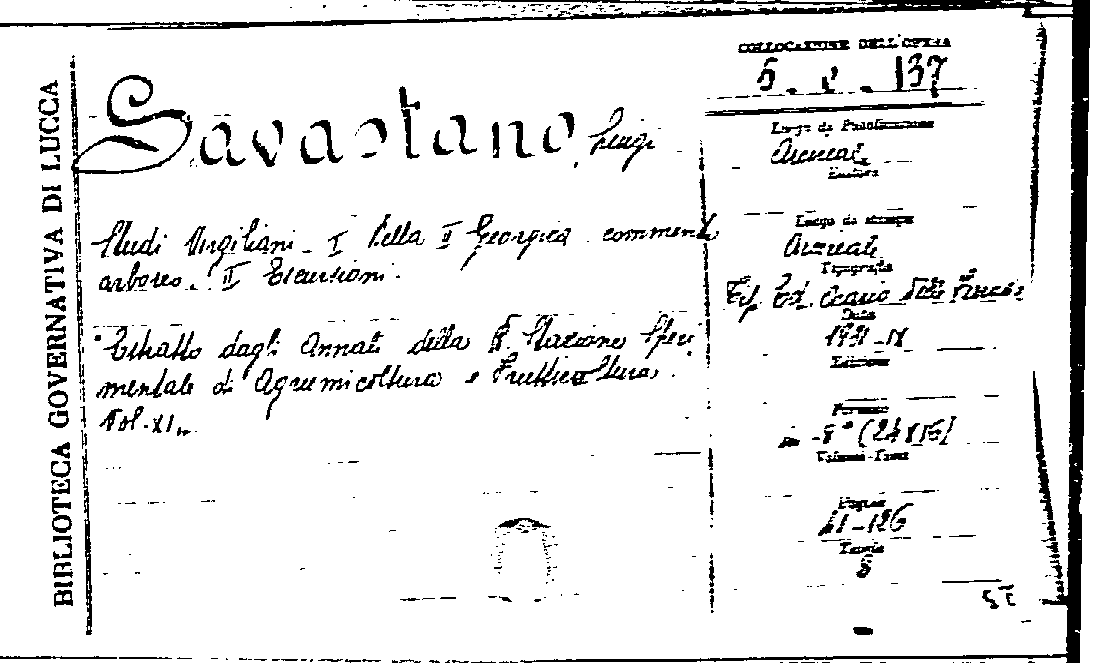 BIBLIOTECA GOVERNATIVA DI LUCCA
Savastano, Luigi
Studi Virgiliani - I Della II Georgica comment
arboreo. II Escursioni.
"Estratto dagli Annali della R. Stazione Speri
mentale di Agrumicoltura e Frutticoltura.
Vol. XI"
COLLOCAZIONE DELL'OPERA
6. e. 137
Luogo di Pubblicazione
Acireale
Editore
Luogo di stampa
Acireale
Tipografia
Tip. Ed.
Data
1931-IX
Edizione
Formato
in-8° (24x16)
Volumi-Tomi
Pagine
11-126
Tavole